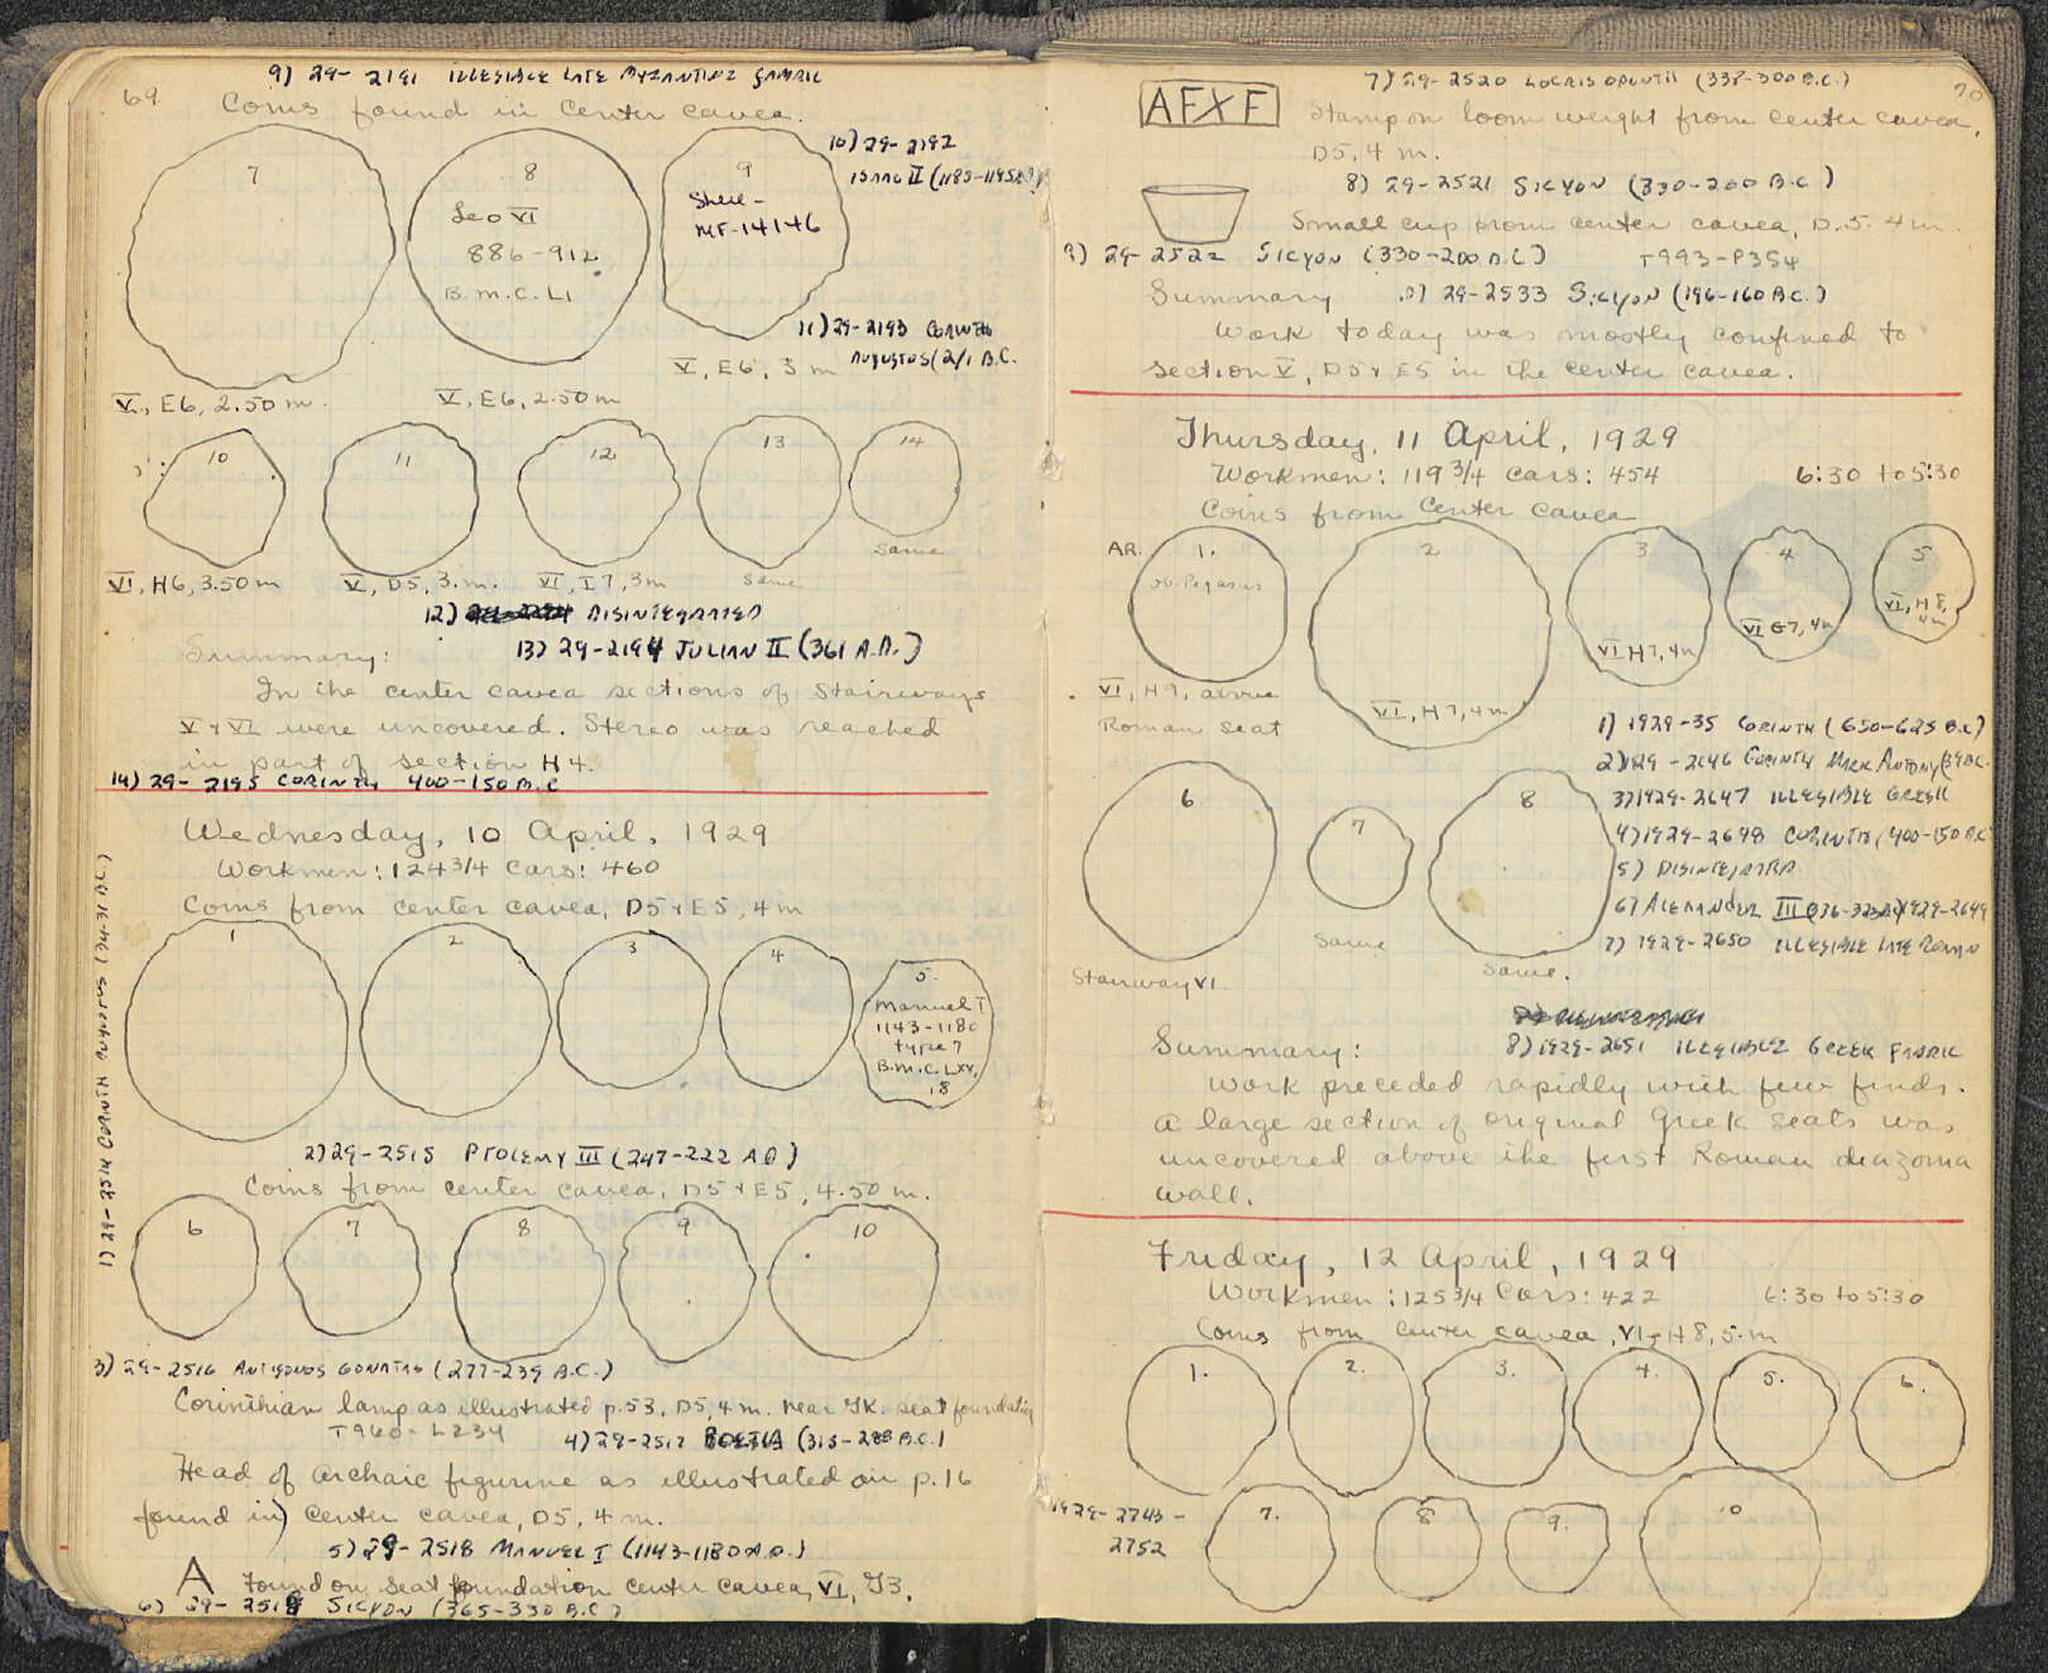 9) 29- 2191 ILLEGIBLE LATE BYZANTINE FABRIC
69 Coins found in center cavea.
7
8
Leo VI
886-912
B.M.C. LI
9
Shell-
MF-14146
10) 29-2192
ISAAC II (1185-1195
11) 29-2193 CORINTH
AUGUSTUS (2/1 B.C.
V, E6, 2.50 m.
V, E6, 2.50 m
V, E6, 3 m
10
11
12
13
14
VI, H6, 3.50 m
V, D5, 3. m.
VI, I7, 3m
Same
Same
12) DISINTEGRATED
13) 29-2194 JULIAN II (361 A.D.)
Summary:
In the center cavea sections of Stairways
V + VI were uncovered. Stereo was reached
in part of section H4.
14) 29- 2195 CORINTH 400-150 B.C
Wednesday, 10 April, 1929
Workmen: 124 3/4 Cars: 460
Coins from center cavea, D5 + E5, 4 m
1
2
3
4
5.
Manuel I
1143-1180
type 7
B.M.C. LXV,
18
1) 29-2514 CORINTH AUGUSTUS (34-31 B.C.)
2) 29-2515 PTOLEMY III (247-222 A D)
Coins from center cavea, D5 + E5, 4.50 m.
6
7
8
9
10
3) 29-2516 ANTIGONOS GONATAS (277-239 B.C.)
Corinthian lamp as illustrated p.53, D5, 4 m. near Gk. seat foundation
T960- L234
4) 29-2517 BOETIA (315-288 B.C.)
Head of archaic figurine as illustrated on p.16
found in) center cavea, D5, 4 m.
5) 29-2518 MANUEL I (1143-1180 A.D.)
A Found on seat foundation center cavea, VI, G3.
6) 29-2519 SICYON (365-330 B.C)
7) 29-2520 LOCRIS OPUNTII (338-300 B.C.)
70
AFXF Stamp on loom weight from center cavea,
D5, 4 m.
8) 29-2521 SICYON (330-200 B.C)
Small cup from center cavea, D.5. 4 m.
9) 29-2522 SICYON (330-200 B.C) T993-P354
Summary 10) 29-2533 SICYON (196-160 B.C.)
Work today was mostly confined to
section V, D5 + E5 in the center cavea.
Thursday, 11 April, 1929
Workmen: 119 3/4 Cars: 454 6:30 to 5:30
Coins from Center Cavea
AR.
1.
ob. Pegasus
2
VI, H7, 4m
3
VI H7, 4m
4
VI G7, 4m
5
VI, H8,
4m
VI, H9, above
Roman seat
1) 1929-35 CORINTH (650-625 B.C)
2) 29-2646 CORINTH MARK ANTONY (39 B.C.
3) 1929-2647 ILLEGIBLE GREEK
4) 1929-2648 CORINTH (400-150 B.C
5) DISINTEGRATED
6) ALEXANDER III (336-323) 1929-2649
7) 1929-2650 ILLEGIBLE LATE ROMAN
6
7
8
Stairway VI
Same
Same.
8) 1929-2651 ILLEGIBLE GREEK FABRIC
Summary:
Work preceded rapidly with few finds.
A large section of original Greek seats was
uncovered above the first Roman diazoma
wall.
Friday, 12 April, 1929
Workmen: 125 3/4 Cars: 422 6:30 to 5:30
Coins from Center cavea, VI, H8, 5. m
1.
2.
3.
4.
5.
6.
1929-2743-
2752
7.
8
9.
10